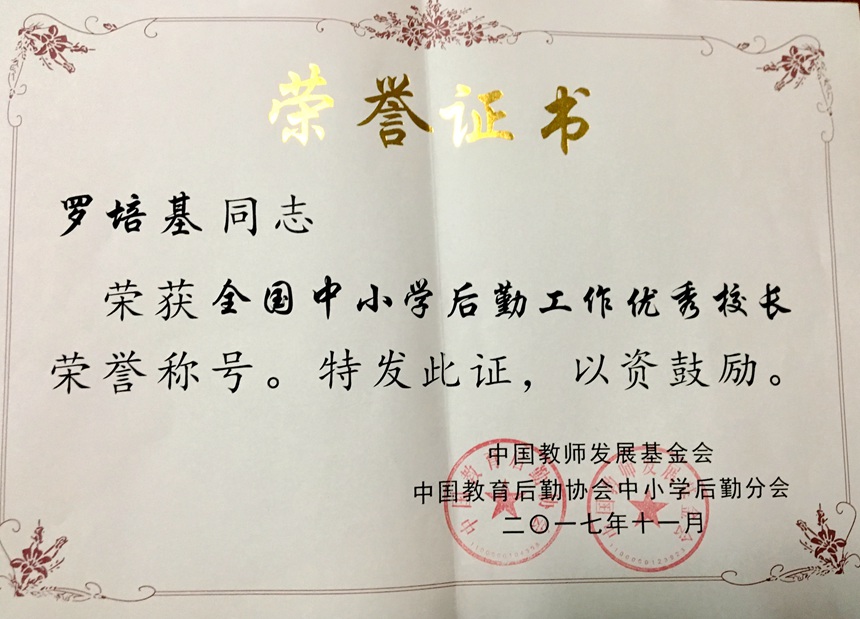 荣誉证书
罗培基同志
荣获全国中小学后勤工作优秀校长
荣誉称号。特发此证，以资鼓励。
中国教师发展基金会
中国教育后勤协会中小学后勤分会
二〇一七年十一月
中国教育后勤协会
中国教师发展基金会